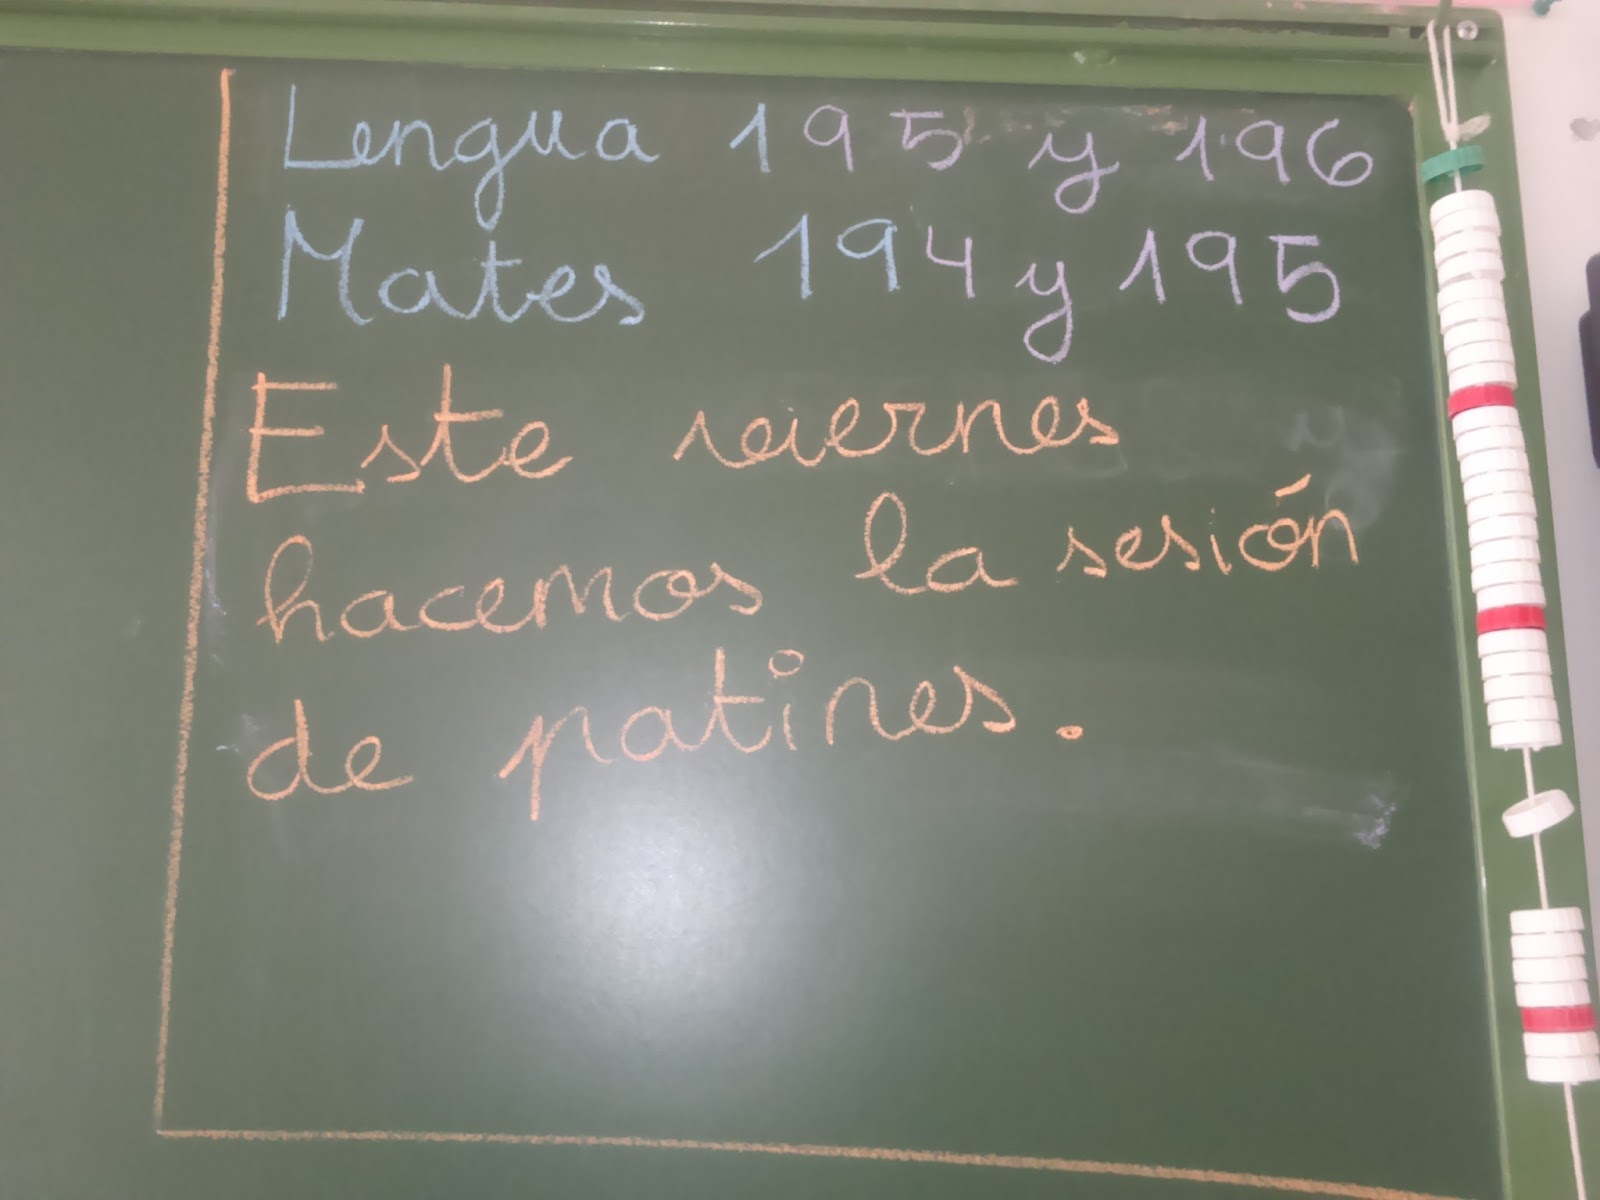 Lengua 195 y 196
Mates 194 y 195
Este viernes
hacemos la sesión
de patines.